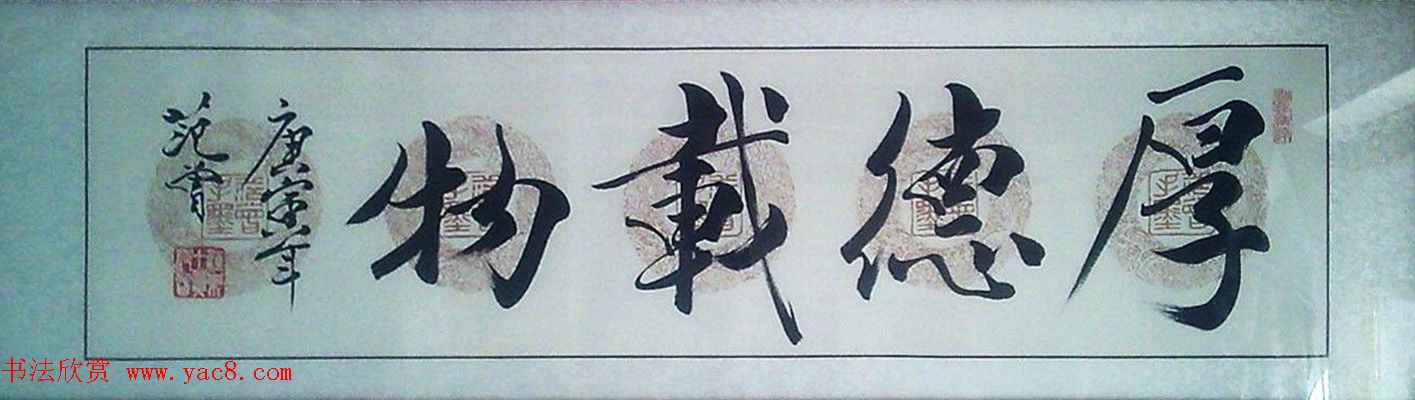 厚德載物
庚寅年
范曾
书法欣赏 www.yac8.com